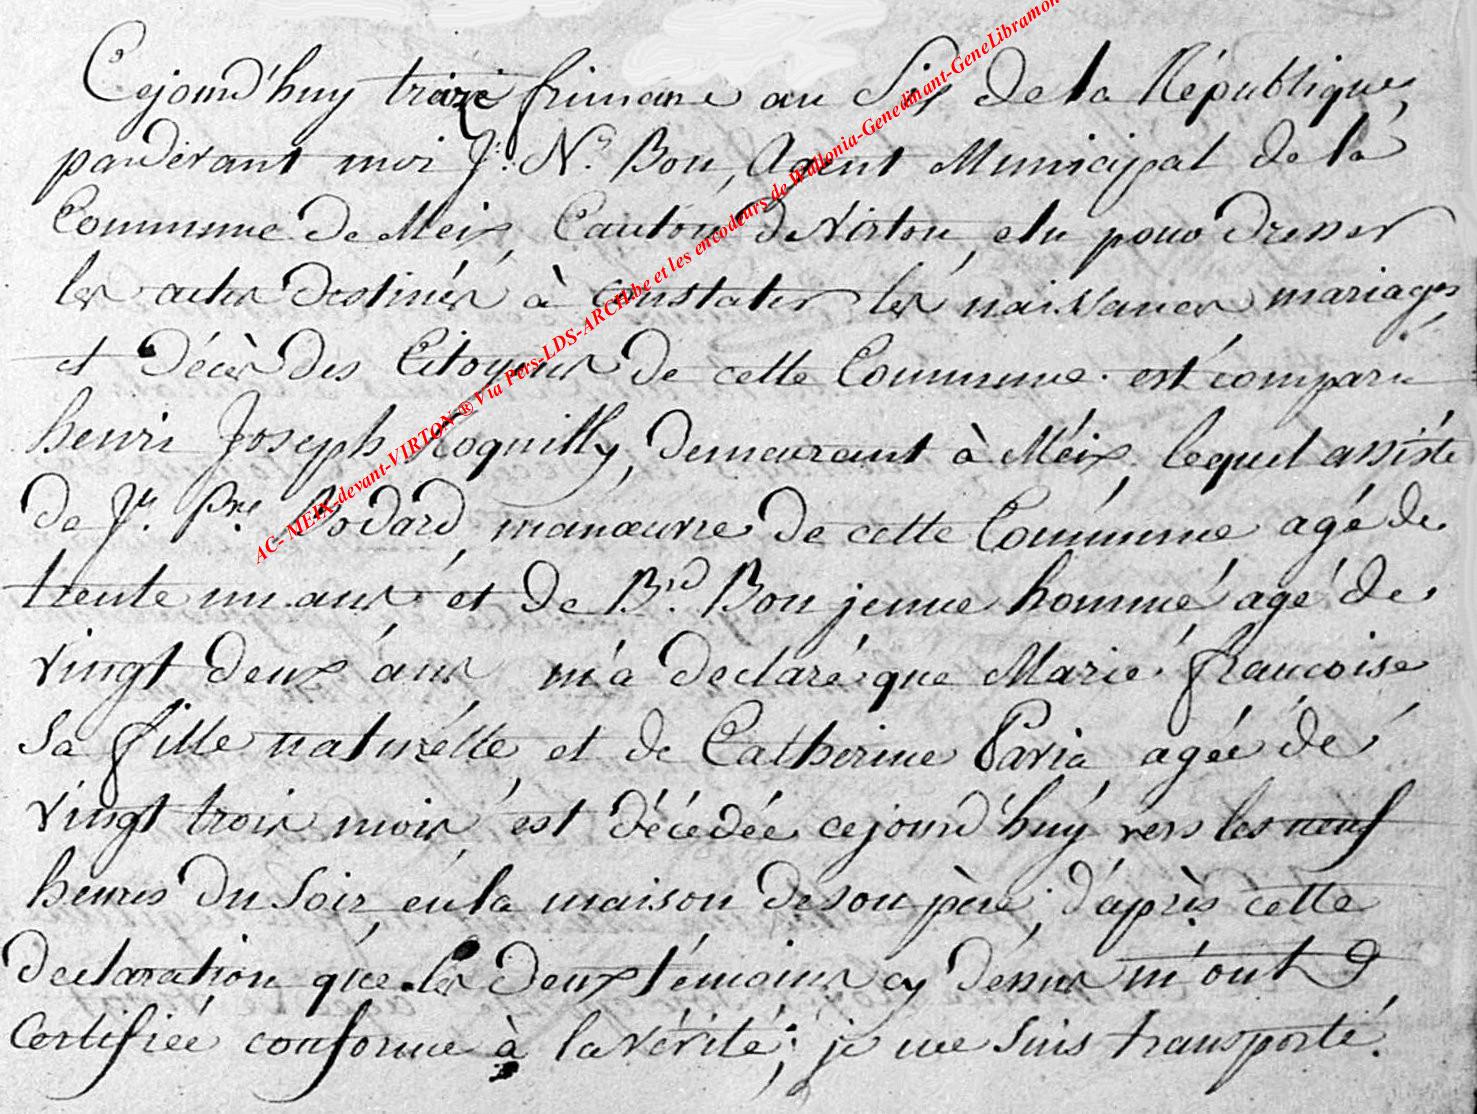 Cejourd'huy treize frimaire an Six de la République,
pardevant moi J. Ns. Bon, Agent Municipal de la
Commune de Meix, Canton de Virton, elu pour dresser
les actes destinés à constater les naissances mariages,
et décès des Citoyens de cette Commune. est comparu
henri Joseph Roquilly, demeurant à Méix, lequel assisté
de Jn. Pre. Bodard, manœuvre de cette Commune agé de
trente un ans et de Brd. Bon jeune homme, agé de
vingt deux ans m'a declaré que Marie françoise
sa fille naturelle, et de Catherine Pavia, agée de
vingt trois mois, est décédée cejourd'huy vers les neuf
heures du soir, en la maison de son père, d'après cette
declaration que les deux témoins cy dessus m'ont
certifiée conforme à la vérité; je me suis transporté.
AC- MEIX-devant-VIRTON ® Via Pers-LDS-ARCH.be et les encodeurs de Wallonia-Genedinant-GeneLibramon